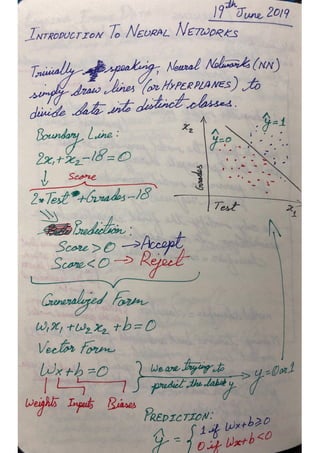 19th June 2019
INTRODUCTION TO NEURAL NETWORKS
Trivially speaking, Neural Networks (NN)
simply draw lines (or HYPERPLANES) to
divide data into distinct classes.
Boundary Line:
2x₁+x₂-18=0
↓ Score
2*Test+Grades-18
Prediction:
Score > 0 → Accept
Score < 0 → Reject
x₂
ŷ=0
ŷ=1
Grades
Test
x₁
Generalized Form
w₁x₁+w₂x₂+b=0
Vector Form
Wx+b=0
Weights Inputs Biases
We are trying to
predict the label y
y=0 or 1
PREDICTION:
ŷ = { 1 if Wx+b≥0
0 if Wx+b<0